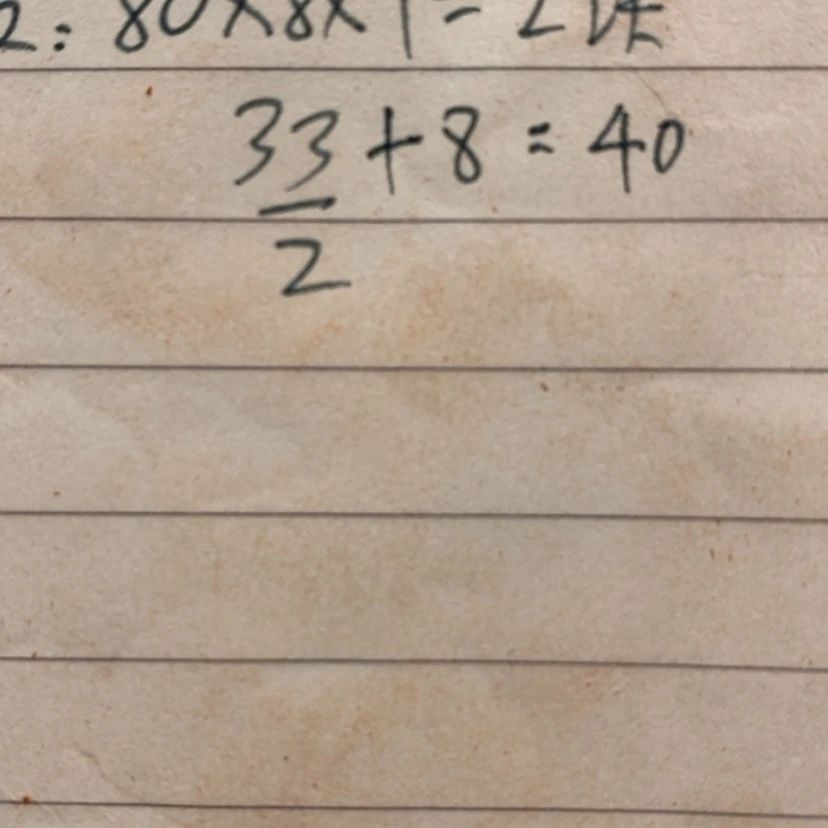 2: 80×8×1=2
33+8=40
2